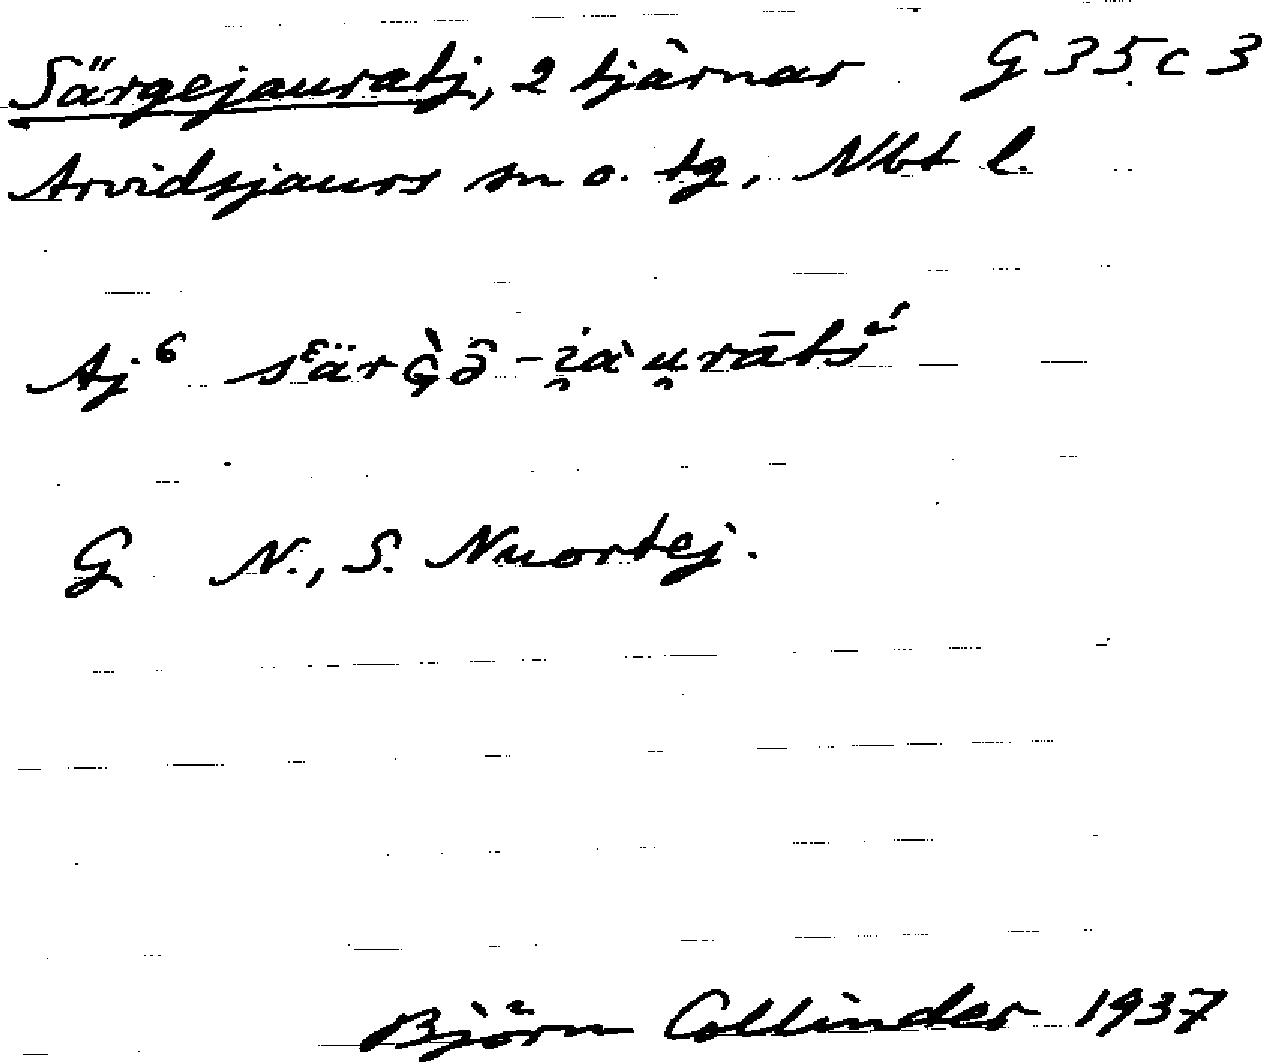 Särgejauratj, 2 tjärnar G 35 c 3
Arvidsjaurs sn o. tg, Nbt l.
Aj⁶
G N., S. Nuortej.
Björn Collinder 1937